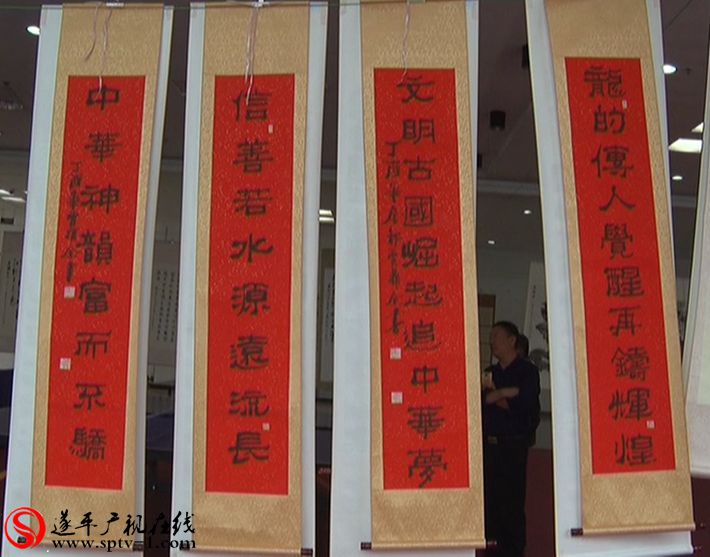 龍的傳人覺醒再鑄輝煌
文明古國崛起追中華夢
信善若水源遠流長
中華神韻富而不驕
遂平广视在线
www.sptv-1.com